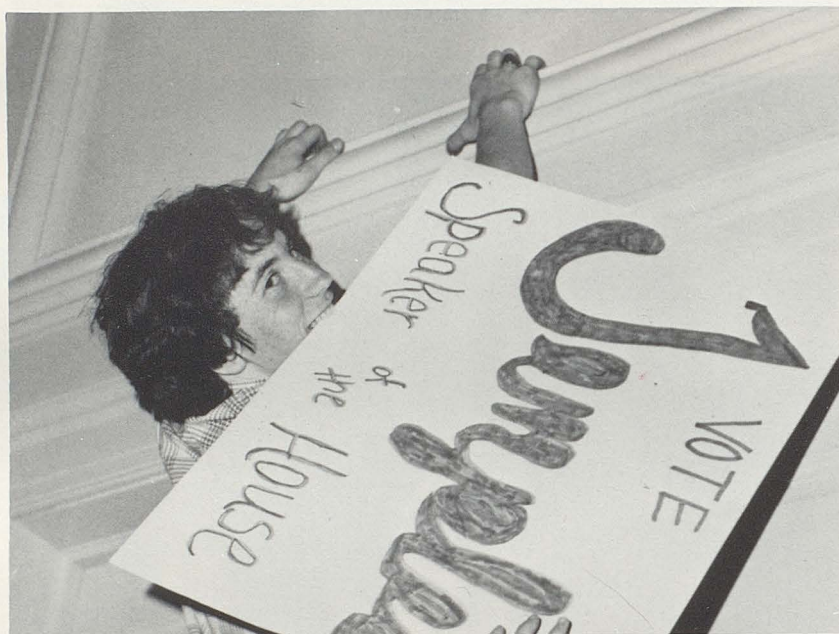 VOTE
Speaker of the House